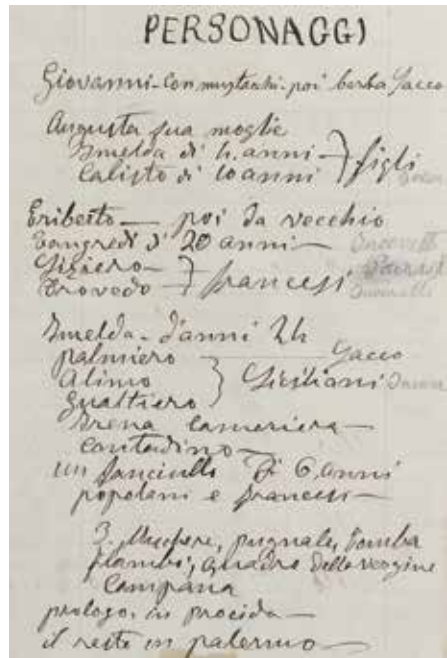 PERSONAGGI
Giovanni - con mustacchi - poi barba Sacco
Augusta sua moglie
Imelda di 4. anni - } figli
Calisto di 10 anni
Eriberto — poi da vecchio
Tangredi di 20 anni —
Sigiero — } francesi
Trovedo —
Imelda - d'anni 24
palmiero — Sacco
Alimo } Siciliani
gualtiero
Irena cameriera —
contadino —
un fanciullo di 6. anni
popolani e francesi —
3. , pugnale, tomba
flambò, quadro della vergine
Campana
prologo in procida —
il resto in palermo —